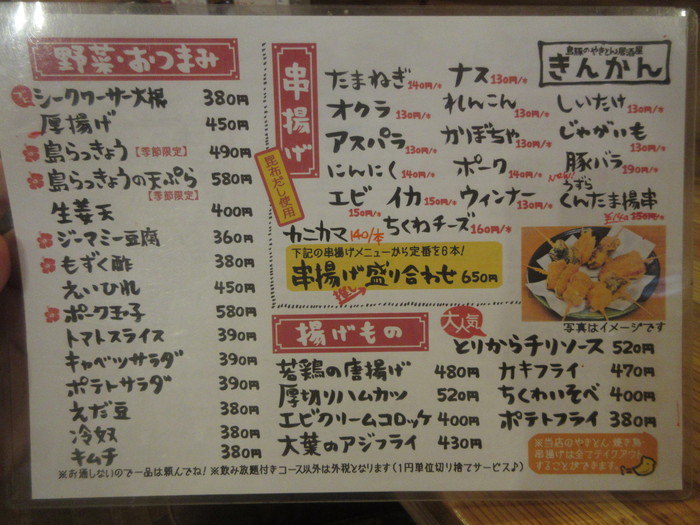 野菜・おつまみ
シークワーサー大根 380円
厚揚げ 450円
島らっきょう【季節限定】 490円
島らっきょうの天ぷら 580円
【季節限定】
生姜天 400円
ジーマミー豆腐 360円
もずく酢 380円
えいひれ 450円
ポーク玉子 580円
トマトスライス 390円
キャベツサラダ 390円
ポテトサラダ 390円
えだ豆 380円
冷奴 380円
キムチ 380円
島豚のやきとん居酒屋
きんかん
串揚げ
昆布だし使用
たまねぎ 140円/本 ナス 130円/本
オクラ 130円/本 れんこん 130円/本 しいたけ 130円/本
アスパラ 130円/本 かぼちゃ 130円/本 じゃがいも 130円/本
にんにく 140円/本 ポーク 140円/本 豚バラ 190円/本
エビ 150円/本 イカ 150円/本 ウィンナー 130円/本 New! うずらくんたま揚串 350円
カニカマ 140/本 ちくわチーズ 160円/本
下記の串揚げメニューから定番を6本!
串揚げ盛り合わせ 650円
写真はイメージです
揚げもの
大人気
とりからチリソース 520円
若鶏の唐揚げ 480円 カキフライ 470円
厚切りハムカツ 520円 ちくわいそべ 400円
エビクリームコロッケ 400円 ポテトフライ 380円
大葉のアジフライ 430円
※当店のやきとん 焼き鳥・
串揚げは全てテイクアウト
することができます。
※お通しないので一品は頼んでね!※飲み放題付きコース以外は外税となります(1円単位切り捨てサービス♪)